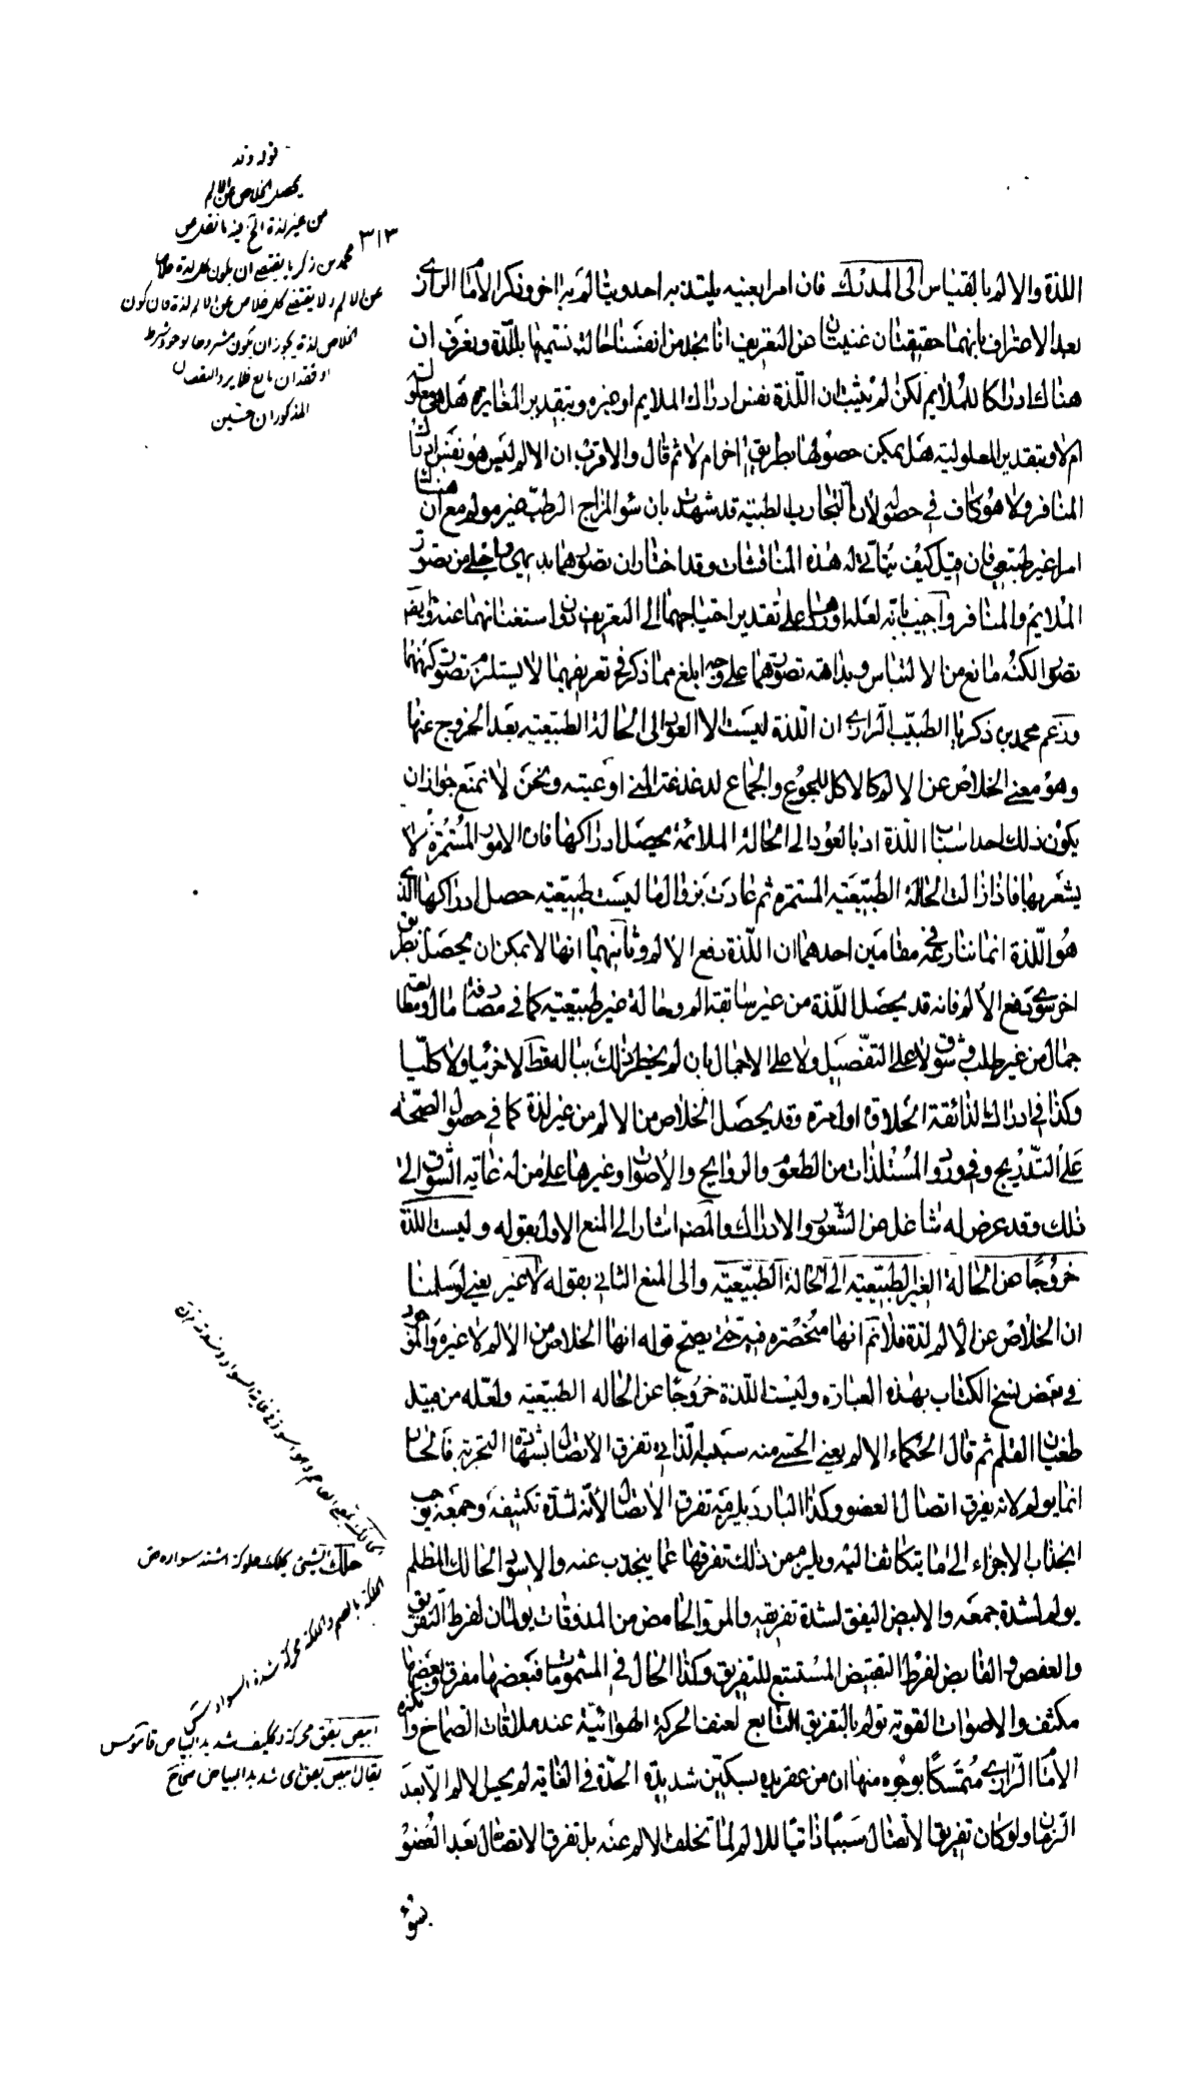 قوله وقد
يحصل الخلاص عن الالم
من غير لذة الخ فيه ما نقله عن
٣١٣
محمد بن زكريا يقتضي ان يكون كل لذة خلاصا
عن الالم ولا يقتضي كل خلاص عن الالم لذة فان كون
الخلاص لذة يجوز ان يكون مشروطا بوجود شرط
او فقدان مانع فلا يرد النقضان
المذكوران حسين
اللذة والالم بالقياس الى المدرك فان امرا بعينه يلتذ به احد ويتالم به اخر وذكر الامام الرازي
بعد الاعتراف بانهما حقيقتان غنيتان عن التعريف انا نجد من انفسنا حالة نسميها باللذة ونعرف ان
هناك ادراكا للملايم لكن لم يثبت ان اللذة نفس ادراك الملايم او غيره وبتقدير المغايرة هل هي معلولة له
ام لا وبتقدير المعلولية هل يمكن حصولها بطريق اخر ام لا ثم قال والاقرب ان الالم ليس هو نفس ادراك
المنافر ولا هو كاف في حصوله لان التجارب الطبية قد شهدت بان سوء المزاج الرطب غير مولم مع ان هناك
امرا غير طبيعي فان قيل كيف يتاتى له هذه المناقشات وقد اختار ان تصورهما بديهي واجلى من تصور
الملايم والمنافر واجيب بانه لعله اوردها على تقدير احتياجهما الى التعريف دون استغنائهما عنه وايضا
تصور الكنه مانع من الالتباس وبداهة تصورهما على وجه ابلغ مما ذكر في تعريفهما لا يستلزم تصور كنههما
وزعم محمد بن زكريا الطبيب الرازي ان اللذة ليست الا العود الى الحالة الطبيعية بعد الخروج عنها
وهو معنى الخلاص عن الالم كالاكل للجوع والجماع لدغدغة المني اوعيته ونحن لا نمنع جواز ان
يكون ذلك احد اسباب اللذة اذ بالعود الى الحالة الملائمة يحصل ادراكها فان الامور المستمرة لا
يشعر بها فاذا زالت الحالة الطبيعية المستمرة ثم عادت بزوال ما ليست طبيعية حصل ادراكها الذي
هو اللذة انما ننازعه في مقامين احدهما ان اللذة دفع الالم وثانيهما انها لا يمكن ان يحصل بطريق
اخر سوى دفع الالم فانه قد يحصل اللذة من غير سابقة الم وحالة غير طبيعية كما في مصادفة مال ومطالعة
جمال من غير طلب وشوق لا على التفصيل ولا على الاجمال بان لم يخطر ذلك بباله قط لا جزئيا ولا كليا
وكذا في ادراك الذائقة الحلاوة اول مرة وقد يحصل الخلاص من الالم من غير لذة كما في حصول الصحة
على التدريج وفي ورود المستلذات من الطعوم والروايح والاصوات وغيرها على من له غاية الشوق الى
ذلك وقد عرض له شاغل عن الشعور والادراك والمصنف اشار الى المنع الاول بقوله وليست اللذة
خروجا عن الحالة الغير الطبيعية الى الحالة الطبيعية والى المنع الثاني بقوله لا غير يعني لو سلمنا
ان الخلاص عن الالم لذة فلا نم انها منحصرة فيه حتى يصح قوله انها الخلاص من الالم لا غير والموجود
في بعض نسخ الكتاب بهذه العبارة وليست اللذة خروجا عن الحالة الطبيعية ولعله من قبيل
طغيان القلم ثم قال الحكماء الالم يعني الحسي منه سببه الذاتي تفرق الاتصال بشهادة التجربة فالحار
انما يولم لانه يفرق اتصال العضو وكذا البارد يلزمه تفرق الاتصال لانه لشدة تكثيفه وجمعه يوجب
انجذاب الاجزاء الى ما يتكاثف اليه ويلزم من ذلك تفرقها عما ينجذب عنه والاسود الحالك المظلم
يولم لشدة جمعه والابيض اليقق لشدة تفريقه والمر والحامض من المذوقات يولمان لفرط التفريق
والعفص والقابض لفرط التقبيض المستتبع للتفريق وكذا الحال في المشمومات فبعضها مفرق وبعضها
مكثف والاصوات القوية تولم بالتفريق التابع لعنف الحركة الهوائية عند ملاقات الصماخ وانكره
الامام الرازي متمسكا بوجوه منها ان من عقر يده بسكين شديدة الحدة في الغاية لم يحس الالم الا بعد
الزمان ولو كان تفريق الاتصال سببا ذاتيا للالم لما تخلف الالم عنه بل تفرق الاتصال يعد العضو
حلك الشيء يحلك حلوكة اشتد سواده ص
الحلكة بالضم والحلكة محركة شدة السواد
ابيض يقق محركة وككتف شديد البياض قاموس
يقال ابيض يقق اى شديد البياض صحاح
بسوء